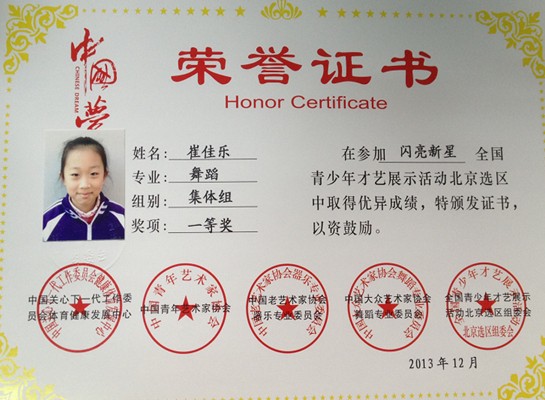 中国梦
CHINESE DREAM
荣誉证书
Honor Certificate
姓名：崔佳乐
专业：舞蹈
组别：集体组
奖项：一等奖
在参加 闪亮新星 全国
青少年才艺展示活动北京选区
中取得优异成绩，特颁发证书，
以资鼓励。
中国关心下一代工作委
员会体育健康发展中心
中国青年艺术家协会
中国老艺术家协会
器乐专业委员会
中国大众艺术家协会
舞蹈专业委员会
全国青少年才艺展示
活动北京选区组委会
中国青年艺术家协会
北京选区组委会
2013年12月